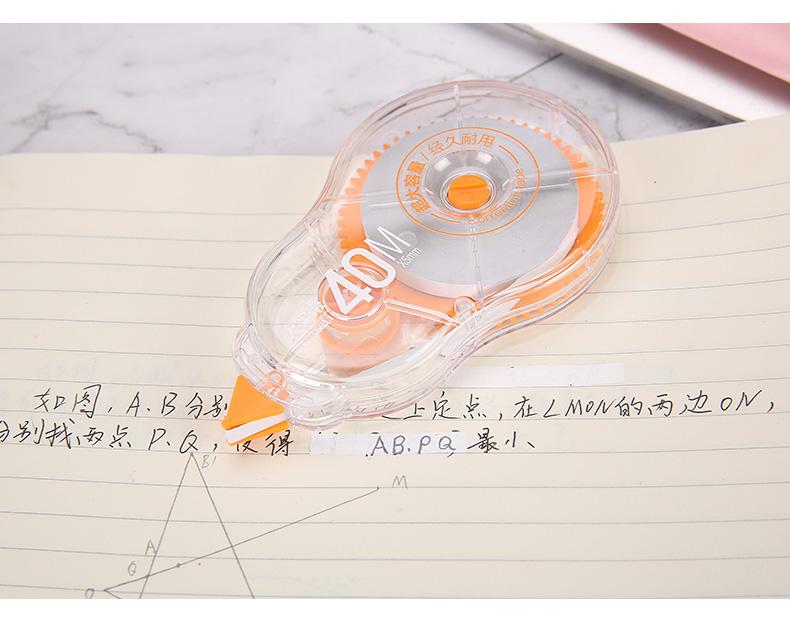 超大容量/经久耐用
Correction tape
40M
X5mm
如图, A、B分别 上定点, 在∠MON的两边ON,
分别找两点 P、Q, 使得 AB.PQ 最小、
B'
M
A
Q
O